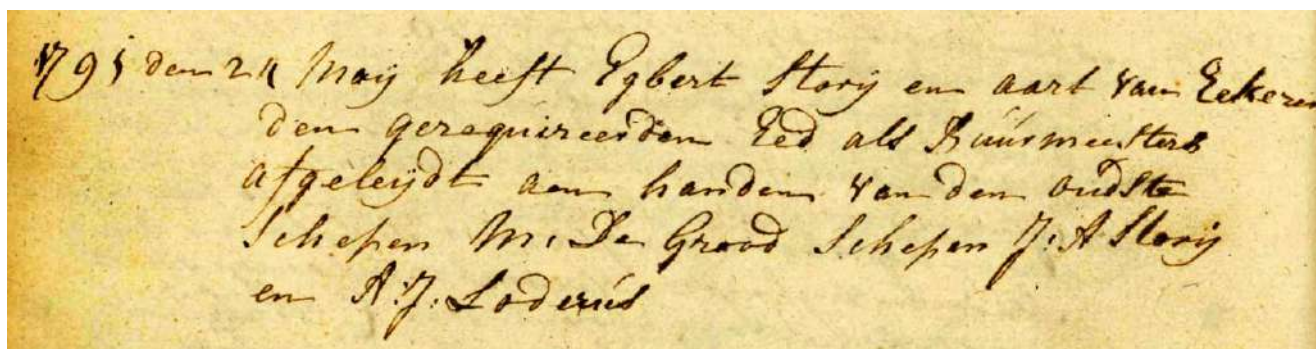 1795 den 24 Maij heeft Egbert Storij en aart van Eekeren
den gerequireerden Eed als Buurmeesters
afgeleijdt aen handen van den oudste
Schepen M: De Grood Schepen J: A Storij
en A: J: Loderus